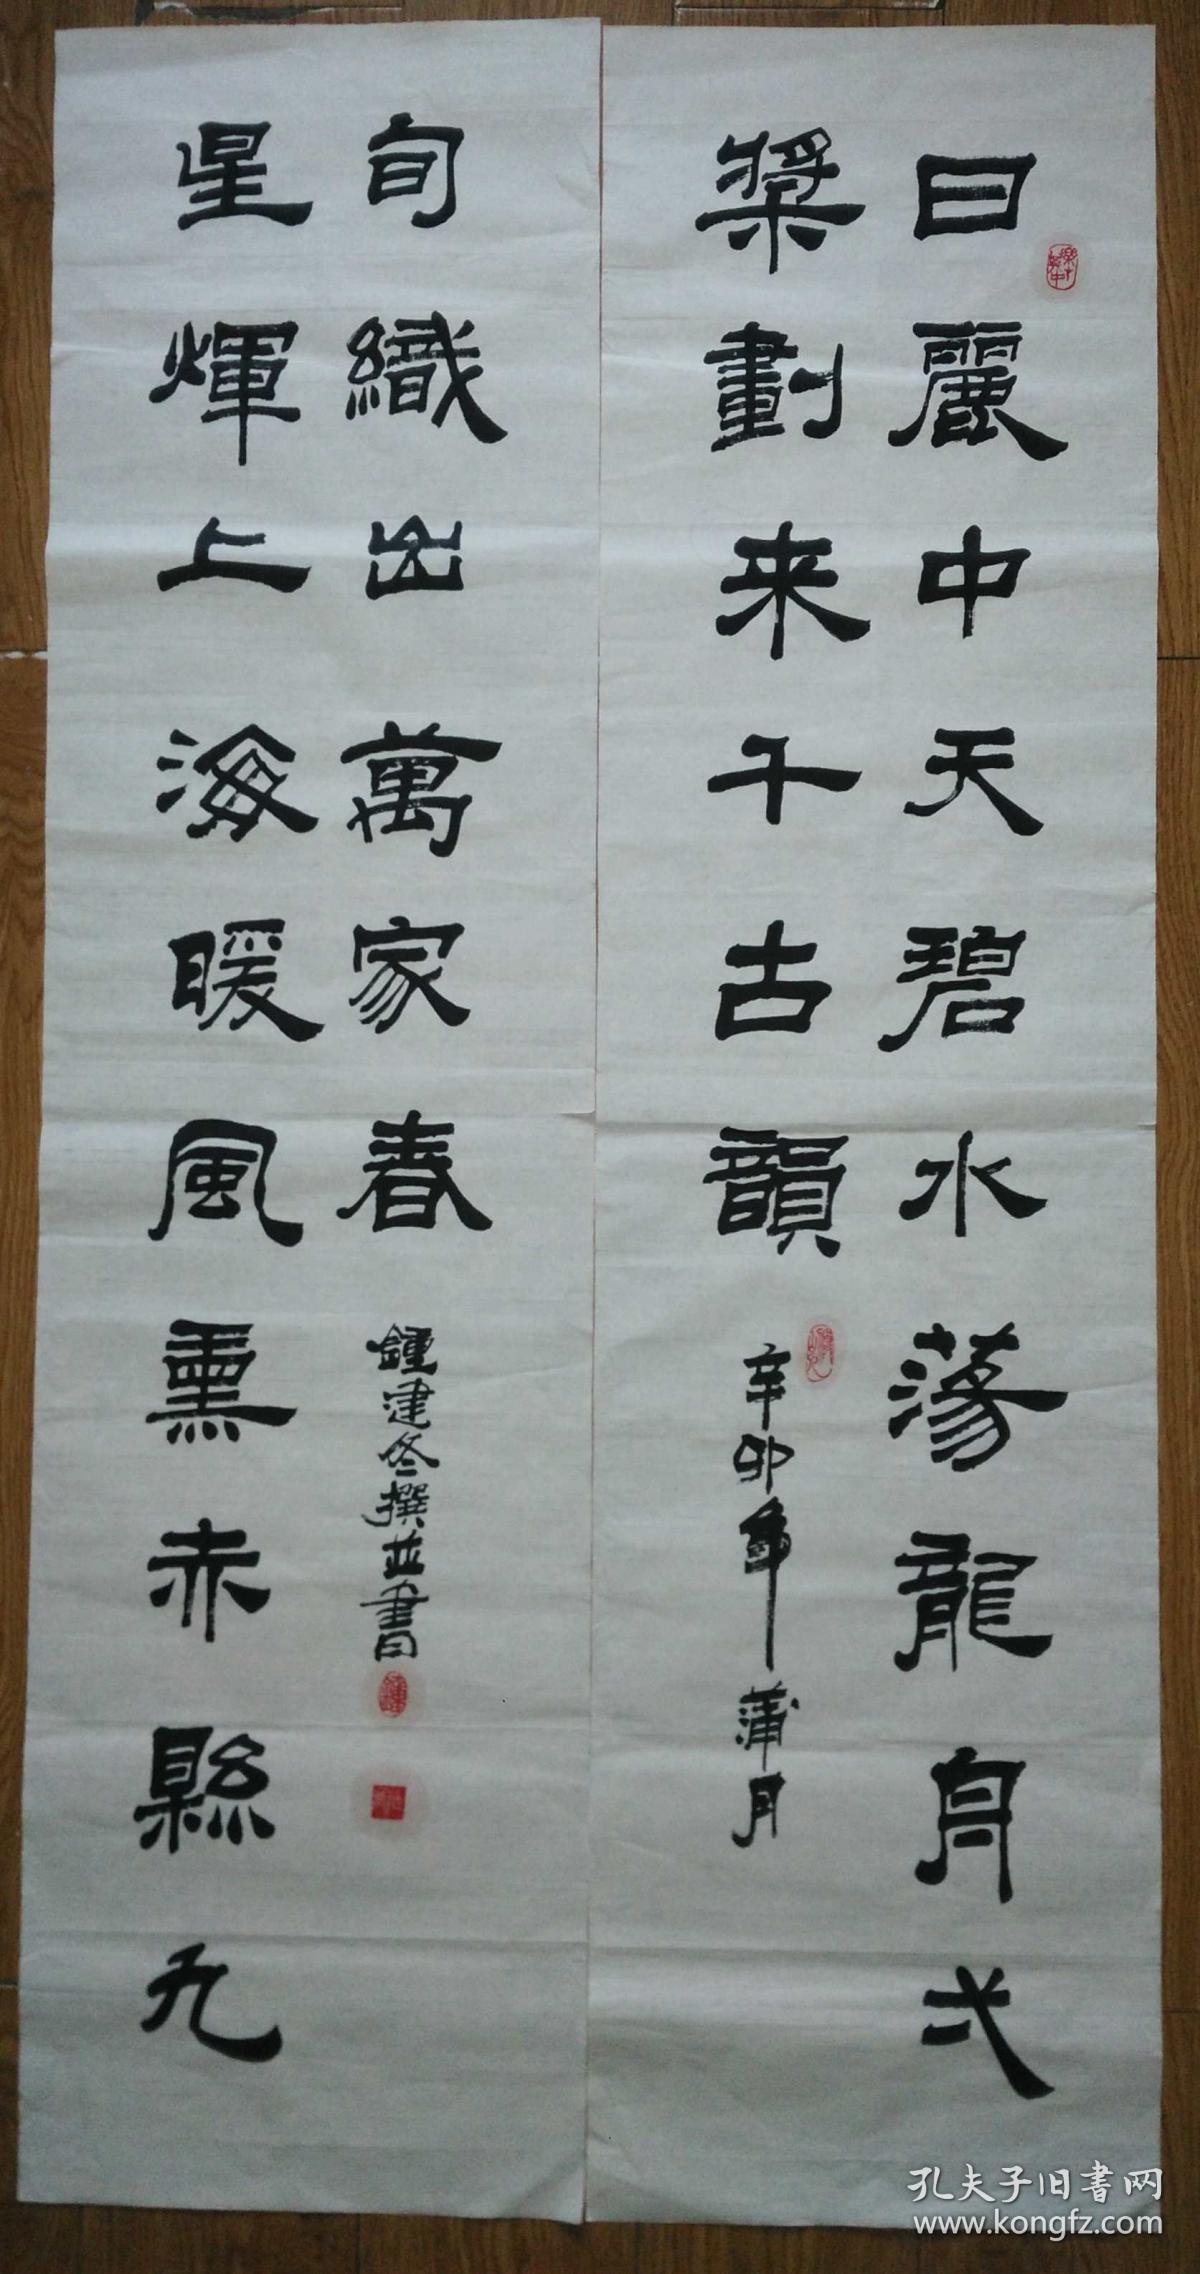 日麗中天碧水蕩龍舟弍
槳劃来千古韻
辛卯年蒲月
星煇上海暖風熏赤縣九
旬織出萬家春
鍾建冬撰並書
孔夫子旧書网
www.kongfz.com